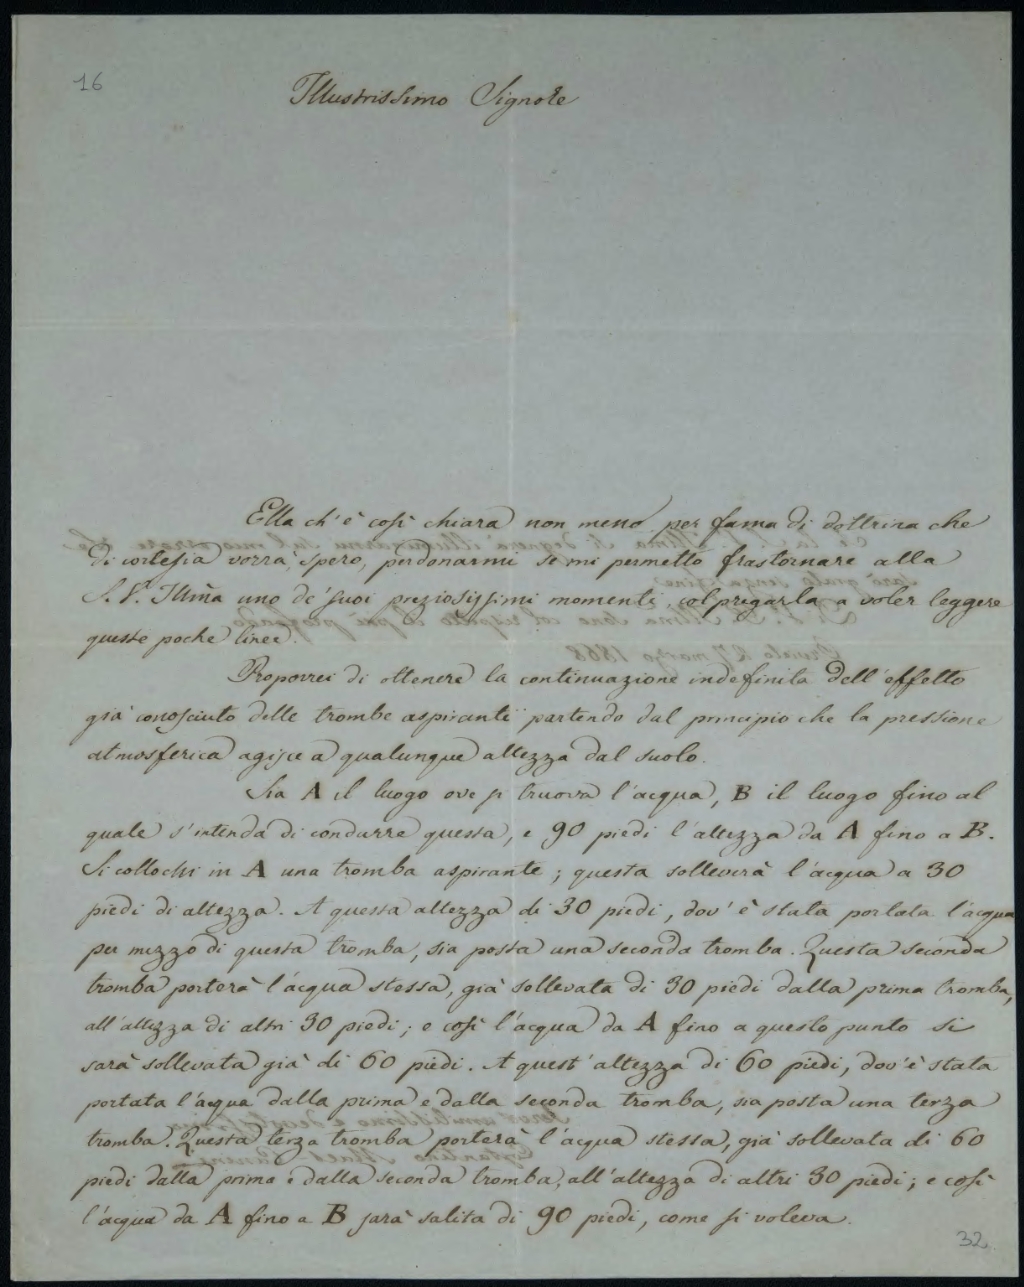 16
Illustrissimo Signore
Ella ch'è così chiara non meno per fama di dottrina che
di cortesia vorrà, spero, perdonarmi se mi permetto frastornare alla
S. V. Illma uno de' suoi preziosissimi momenti, col pregarla a voler leggere
queste poche linee.
Proporrei di ottenere la continuazione indefinita dell'effetto
già conosciuto delle trombe aspiranti partendo dal principio che la pressione
atmosferica agisce a qualunque altezza dal suolo.
Sia A il luogo ove si truova l'acqua, B il luogo fino al
quale s'intenda di condurre questa, e 90 piedi l'altezza da A fino a B.
Si collochi in A una tromba aspirante; questa solleverà l'acqua a 30
piedi di altezza. A questa altezza di 30 piedi, dov'è stata portata l'acqua
per mezzo di questa tromba, sia posta una seconda tromba. Questa seconda
tromba porterà l'acqua stessa, già sollevata di 30 piedi dalla prima tromba,
all'altezza di altri 30 piedi; e così l'acqua da A fino a questo punto si
sarà sollevata già di 60 piedi. A quest'altezza di 60 piedi, dov'è stata
portata l'acqua dalla prima e dalla seconda tromba, sia posta una terza
tromba. Questa terza tromba porterà l'acqua stessa, già sollevata di 60
piedi dalla prima e dalla seconda tromba, all'altezza di altri 30 piedi; e così
l'acqua da A fino a B sarà salita di 90 piedi, come si voleva.
32